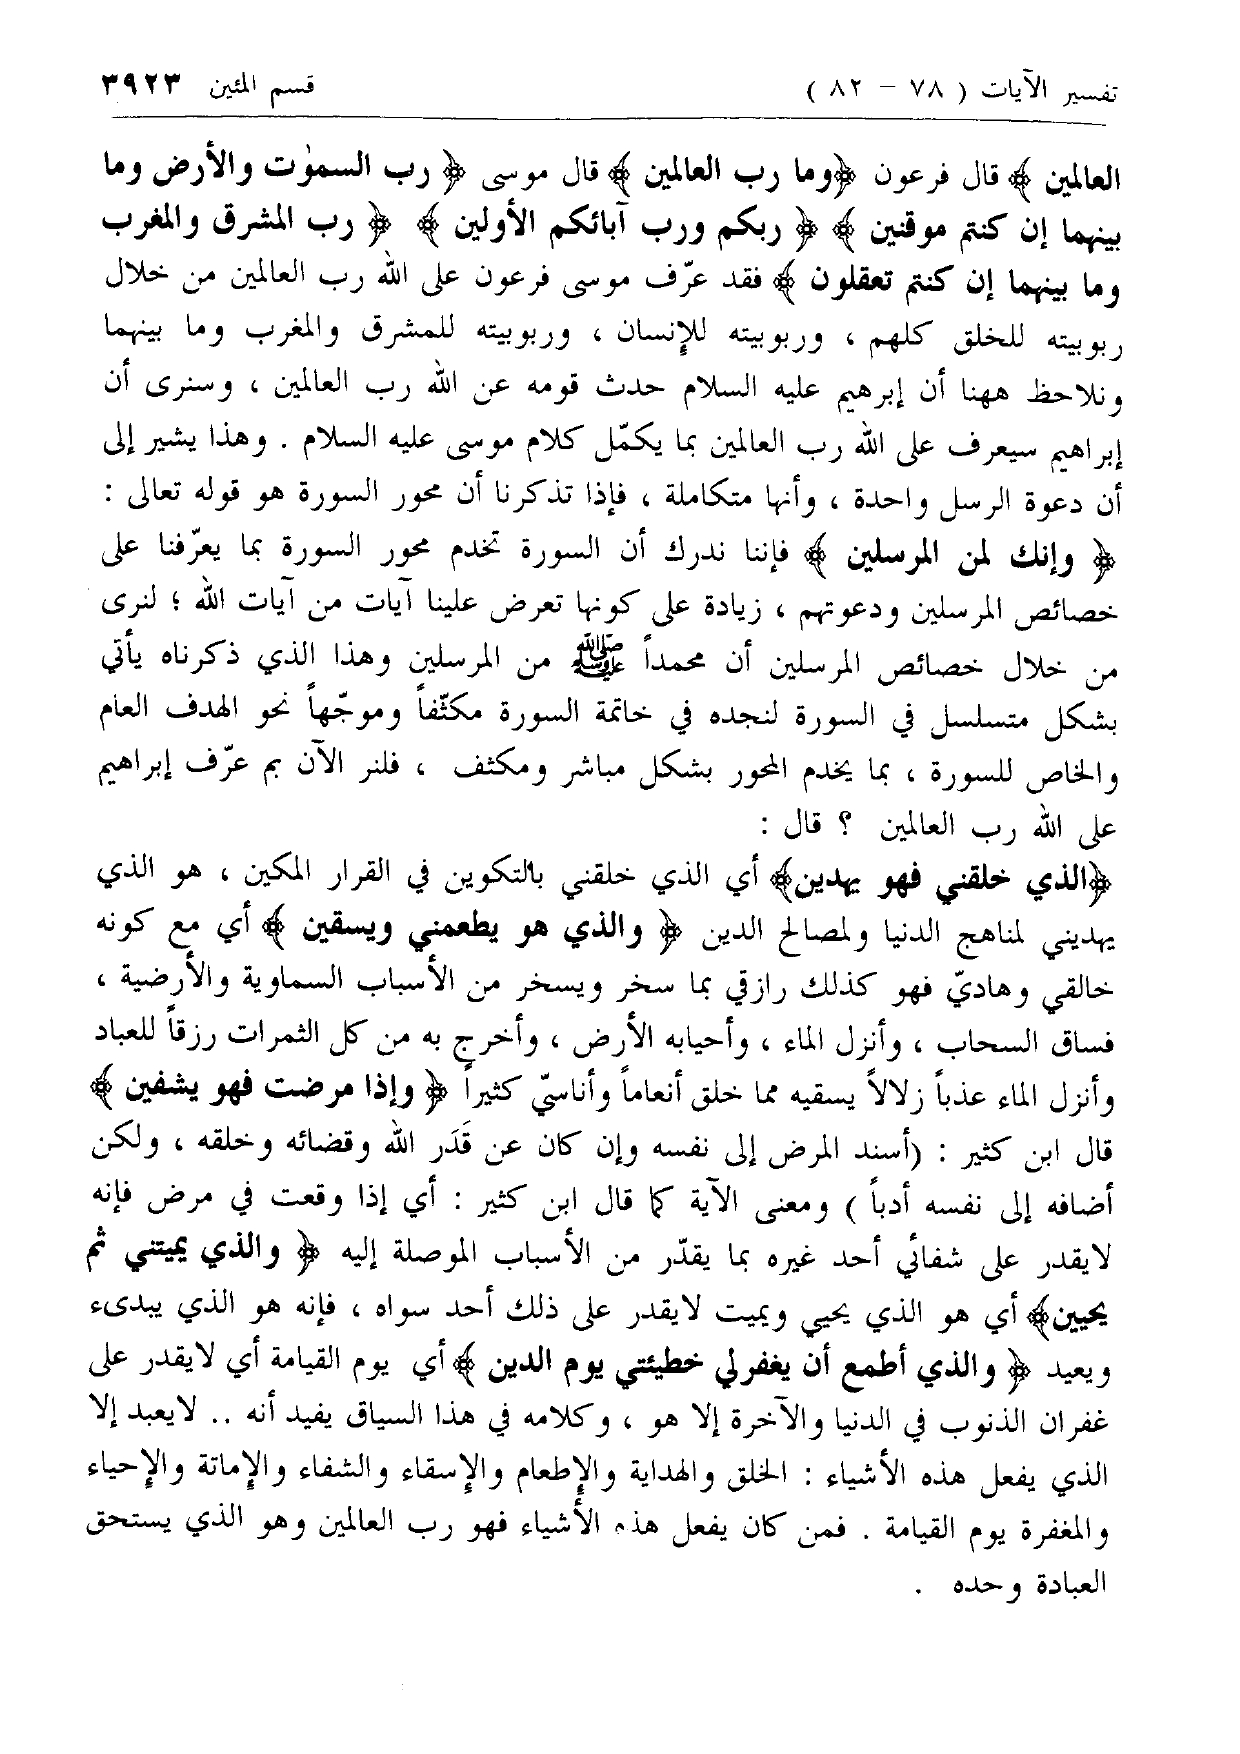 تفسير الآيات ( ٧٨ – ٨٢ ) قسم المئين ٣٩٢٣
العالمين ﴾ قال فرعون ﴿وما رب العالمين ﴾ قال موسى ﴿ رب السموٰت والأرض وما
بينهما إن كنتم موقنين ﴾ ﴿ ربكم ورب آبائكم الأولين ﴾ ﴿ رب المشرق والمغرب
وما بينهما إن كنتم تعقلون ﴾ فقد عرّف موسى فرعون على الله رب العالمين من خلال
ربوبيته للخلق كلهم ، وربوبيته للإنسان ، وربوبيته للمشرق والمغرب وما بينهما
ونلاحظ ههنا أن إبرهيم عليه السلام حدث قومه عن الله رب العالمين ، وسنرى أن
إبراهيم سيعرف على الله رب العالمين بما يكمّل كلام موسى عليه السلام . وهذا يشير إلى
أن دعوة الرسل واحدة ، وأنها متكاملة ، فإذا تذكرنا أن محور السورة هو قوله تعالى :
﴿ وإنك لمن المرسلين ﴾ فإننا ندرك أن السورة تخدم محور السورة بما يعرّفنا على
خصائص المرسلين ودعوتهم ، زيادة على كونها تعرض علينا آيات من آيات الله ؛ لنرى
من خلال خصائص المرسلين أن محمداً ﷺ من المرسلين وهذا الذي ذكرناه يأتي
بشكل متسلسل في السورة لنجده في خاتمة السورة مكثّفاً وموجّهاً نحو الهدف العام
والخاص للسورة ، بما يخدم المحور بشكل مباشر ومكثف ، فلنر الآن بم عرّف إبراهيم
على الله رب العالمين ؟ قال :
﴿الذي خلقني فهو يهدين﴾ أي الذي خلقني بالتكوين في القرار المكين ، هو الذي
يهديني لمناهج الدنيا ولمصالح الدين ﴿ والذي هو يطعمني ويسقين ﴾ أي مع كونه
خالقي وهاديّ فهو كذلك رازقي بما سخر ويسخر من الأسباب السماوية والأرضية ،
فساق السحاب ، وأنزل الماء ، وأحيابه الأرض ، وأخرج به من كل الثمرات رزقاً للعباد
وأنزل الماء عذباً زلالاً يسقيه مما خلق أنعاماً وأناسيّ كثيراً ﴿ وإذا مرضت فهو يشفين ﴾
قال ابن كثير : (أسند المرض إلى نفسه وإن كان عن قَدَر الله وقضائه وخلقه ، ولكن
أضافه إلى نفسه أدباً ) ومعنى الآية كما قال ابن كثير : أي إذا وقعت في مرض فإنه
لايقدر على شفائي أحد غيره بما يقدّر من الأسباب الموصلة إليه ﴿ والذي يميتني ثم
يحيين﴾ أي هو الذي يحيي ويميت لايقدر على ذلك أحد سواه ، فإنه هو الذي يبدىء
ويعيد ﴿ والذي أطمع أن يغفرلي خطيئتي يوم الدين ﴾ أي يوم القيامة أي لايقدر على
غفران الذنوب في الدنيا والآخرة إلا هو ، وكلامه في هذا السياق يفيد أنه .. لايعبد إلا
الذي يفعل هذه الأشياء : الخلق والهداية والإطعام والإسقاء والشفاء والإماتة والإحياء
والمغفرة يوم القيامة . فمن كان يفعل هذه الأشياء فهو رب العالمين وهو الذي يستحق
العبادة وحده .